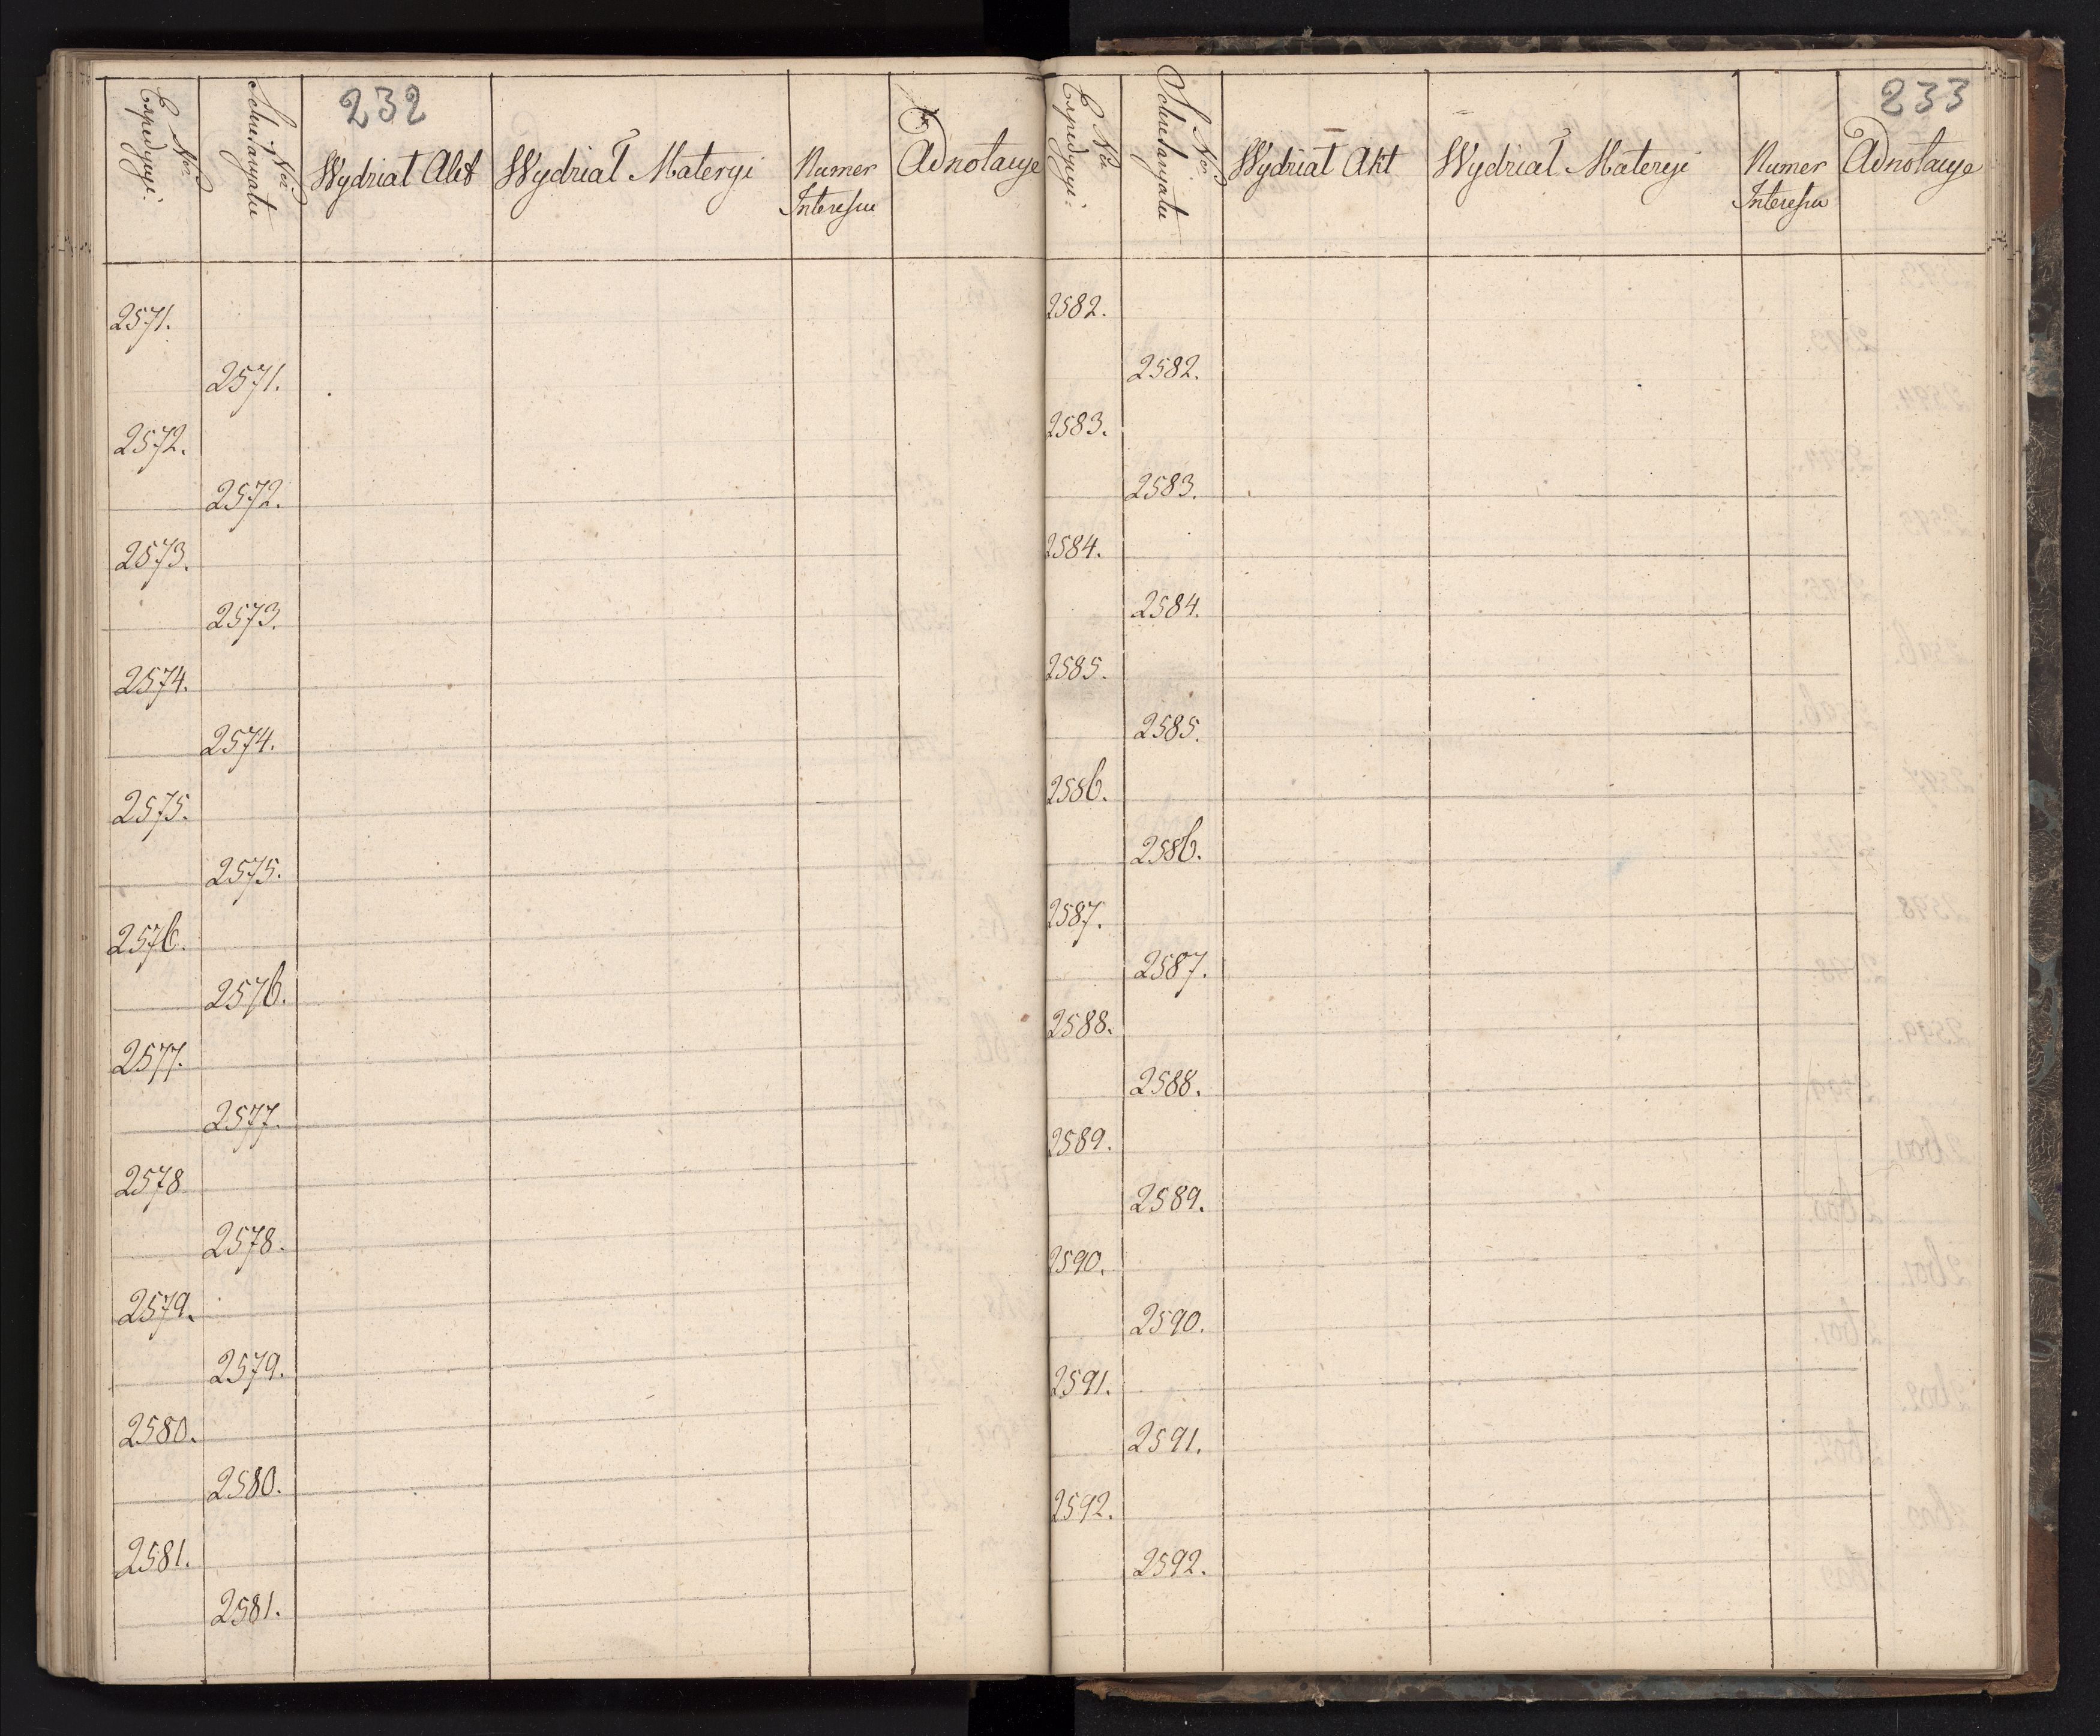 232
Nr. Expedycyi.
Nr. Sekretaryatu
Wydział Akt
Wydział Materyi
Numer
Interessu
Adnotacye
2571.
2571.
2572.
2572.
2573.
2573.
2574.
2574.
2575.
2575.
2576.
2576.
2577.
2577.
2578
2578.
2579.
2579.
2580.
2580.
2581.
2581.
233
Nr. Expedycyi.
Nr. Sekretaryatu
Wydział Akt
Wydział Materyi
Numer
Interessu
Adnotacye
2582.
2582.
2583.
2583.
2584.
2584.
2585.
2585.
2586.
2586.
2587.
2587.
2588.
2588.
2589.
2589.
2590.
2590.
2591.
2591.
2592.
2592.